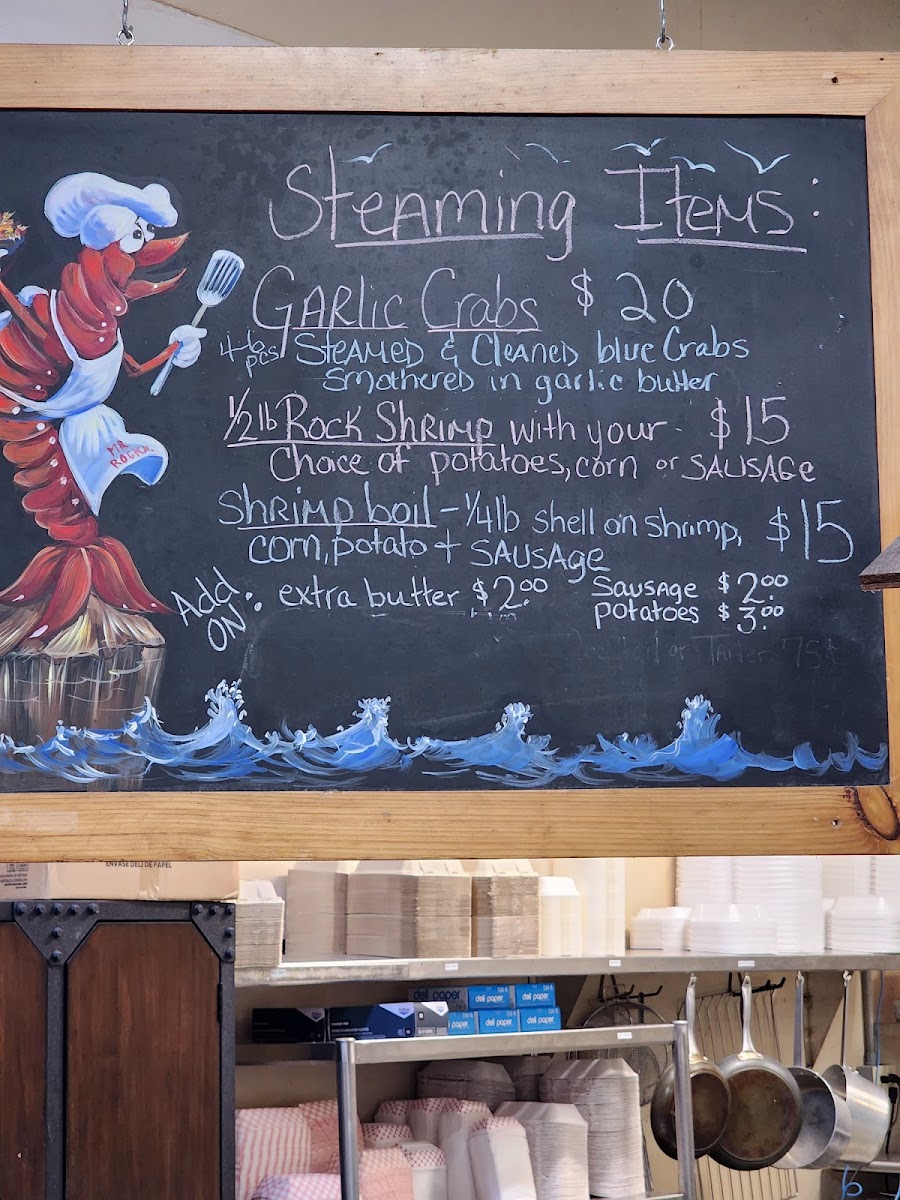 Steaming Items:
Garlic Crabs $20
4-6 pcs Steamed & Cleaned blue Crabs
smothered in garlic butter
1/2 lb Rock Shrimp with your $15
Choice of potatoes, corn or SAUSAGE
Shrimp boil - 1/4 lb shell on shrimp, $15
corn, potato + SAUSAGE
Add ON: extra butter $2.00 Sausage $2.00
potatoes $3.00
MR
ENVASE DELI DE PAPEL
deli paper
deli paper
deli paper
deli paper
deli paper
deli paper
6